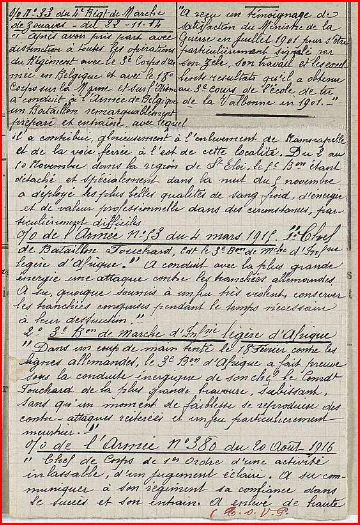 O/ N° 33 du 4e Régt de Marche
de Zouaves - du 28-11-14
"après avoir pris part avec
distinction à toutes les opérations
du Régiment avec le 3e Corps d'ar-
mée en Belgique et avec le 18e
Corps sur la Marne et sur l'Aisne
a conduit à l'Armée de Belgique
un Bataillon remarquablement
préparé et entraîné, avec lequel
"A reçu un témoignage de
satisfaction du Ministre de la
Guerre en Juillet 1901 pour s'être
particulièrement signalé par
son zèle, son travail et les excel-
lents résultats qu'il a obtenus
au 3e cours de l'école de tir
de la Valbonne en 1901."
il a contribué, glorieusement à l'enlèvement de Ramscapelle
et de la voie ferrée à l'est de cette localité. Du 2 au
10 Novembre dans la région de St Eloi, le 5e Bon étant
détaché et spécialement dans la nuit du 6 novembre
a déployé les plus belles qualités de sang froid, d'énergie
et de valeur professionnelle dans des circonstances, par-
ticulièrement difficiles
O/O de l'Armée N° 53 du 4 mars 1915. "Le Chef
de Bataillon Touchard, Cdt le 3e Bon de mche d'Infrie
légère d'Afrique." A conduit avec la plus grande
énergie une attaque contre les tranchées allemandes
A su, quoique soumis à un feu très violent conserver
les tranchées conquises pendant le temps nécessaire
à leur destruction."
2° 3e Bon de Marche d'Infrie légère d'Afrique
"Dans un coup de main tenté le 18 février contre les
lignes allemandes, le 3e Bon d'Afrique a fait preuve
sous la conduite énergique de son chef, le Comdt
Touchard de la plus grande bravoure, subissant
sans qu'un moment de faiblesse se reproduise des
contre-attaques réitérées et un feu particulièrement
meurtrier."
O/O de l'Armée N° 380 du 20 Août 1916
"Chef de Corps de 1er Ordre d'une activité
inlassable, d'un jugement éclairé. A su com-
muniquer à son régiment sa confiance dans
le succès et son entrain. A enlevé de haute
T.S.V.P.